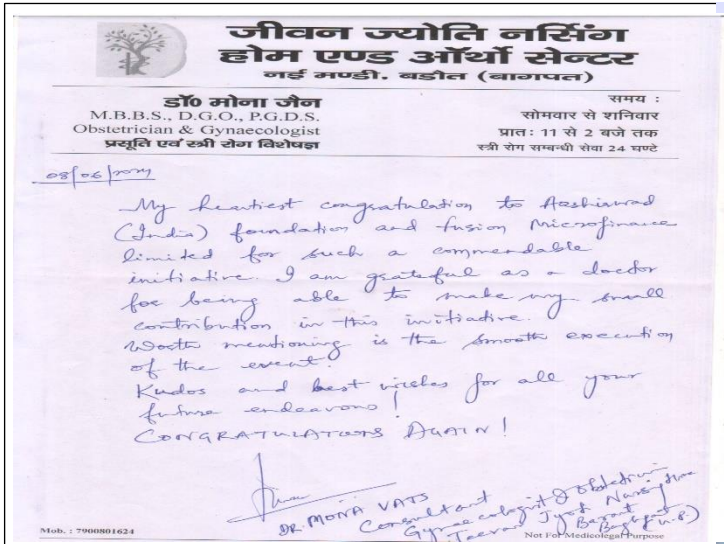 जीवन ज्योति नर्सिंग
होम एण्ड ऑर्थो सेन्टर
नई मण्डी. बडौत (बागपत)
डॉ० मोना जैन
M.B.B.S., D.G.O., P.G.D.S.
Obstetrician & Gynaecologist
प्रसूति एवं स्त्री रोग विशेषज्ञ
समय :
सोमवार से शनिवार
प्रातः 11 से 2 बजे तक
स्त्री रोग सम्बन्धी सेवा 24 घण्टे
08/06/2024
My heartiest congratulation to Aashirwad
(India) foundation and fusion Microfinance
limited for such a commendable
initiative. I am grateful as a doctor
for being able to make my small
contribution in this initiative.
Worth mentioning is the smooth execution
of the event.
Kudos and best wishes for all your
future endeavours!
CONGRATULATIONS AGAIN!
DR. MONA VATS
Consultant
Gynaecologist & Obstetrician
Jeevan Jyoti Nursing Home
Baraut
Baghpat (U.P)
Mob. : 7900801624
Not For Medicolegal Purpose